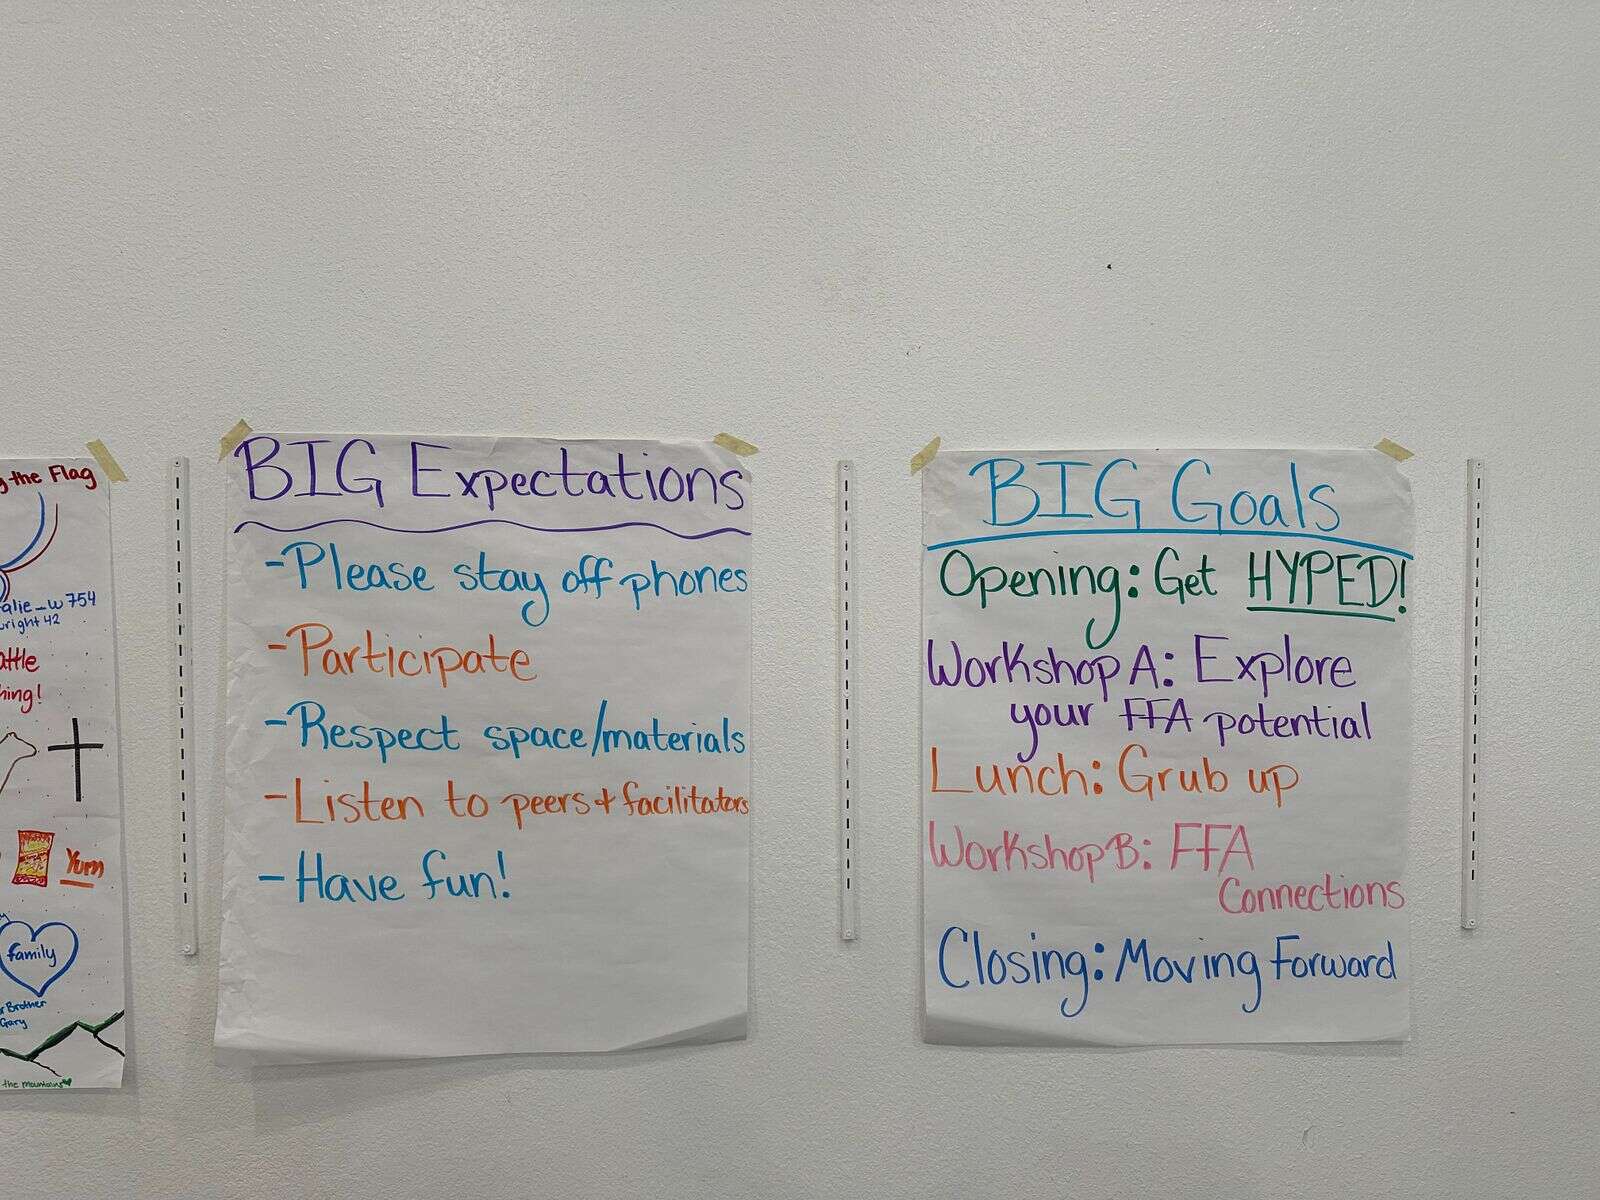 the Flag
w 754
wright 42
Yum
family
Brother
Gary
the mountains
BIG Expectations
-Please stay off phones
-Participate
-Respect space/materials
-Listen to peers + facilitators
-Have fun!
BIG Goals
Opening: Get HYPED!
Workshop A: Explore
your FFA potential
Lunch: Grub up
Workshop B: FFA
Connections
Closing: Moving Forward